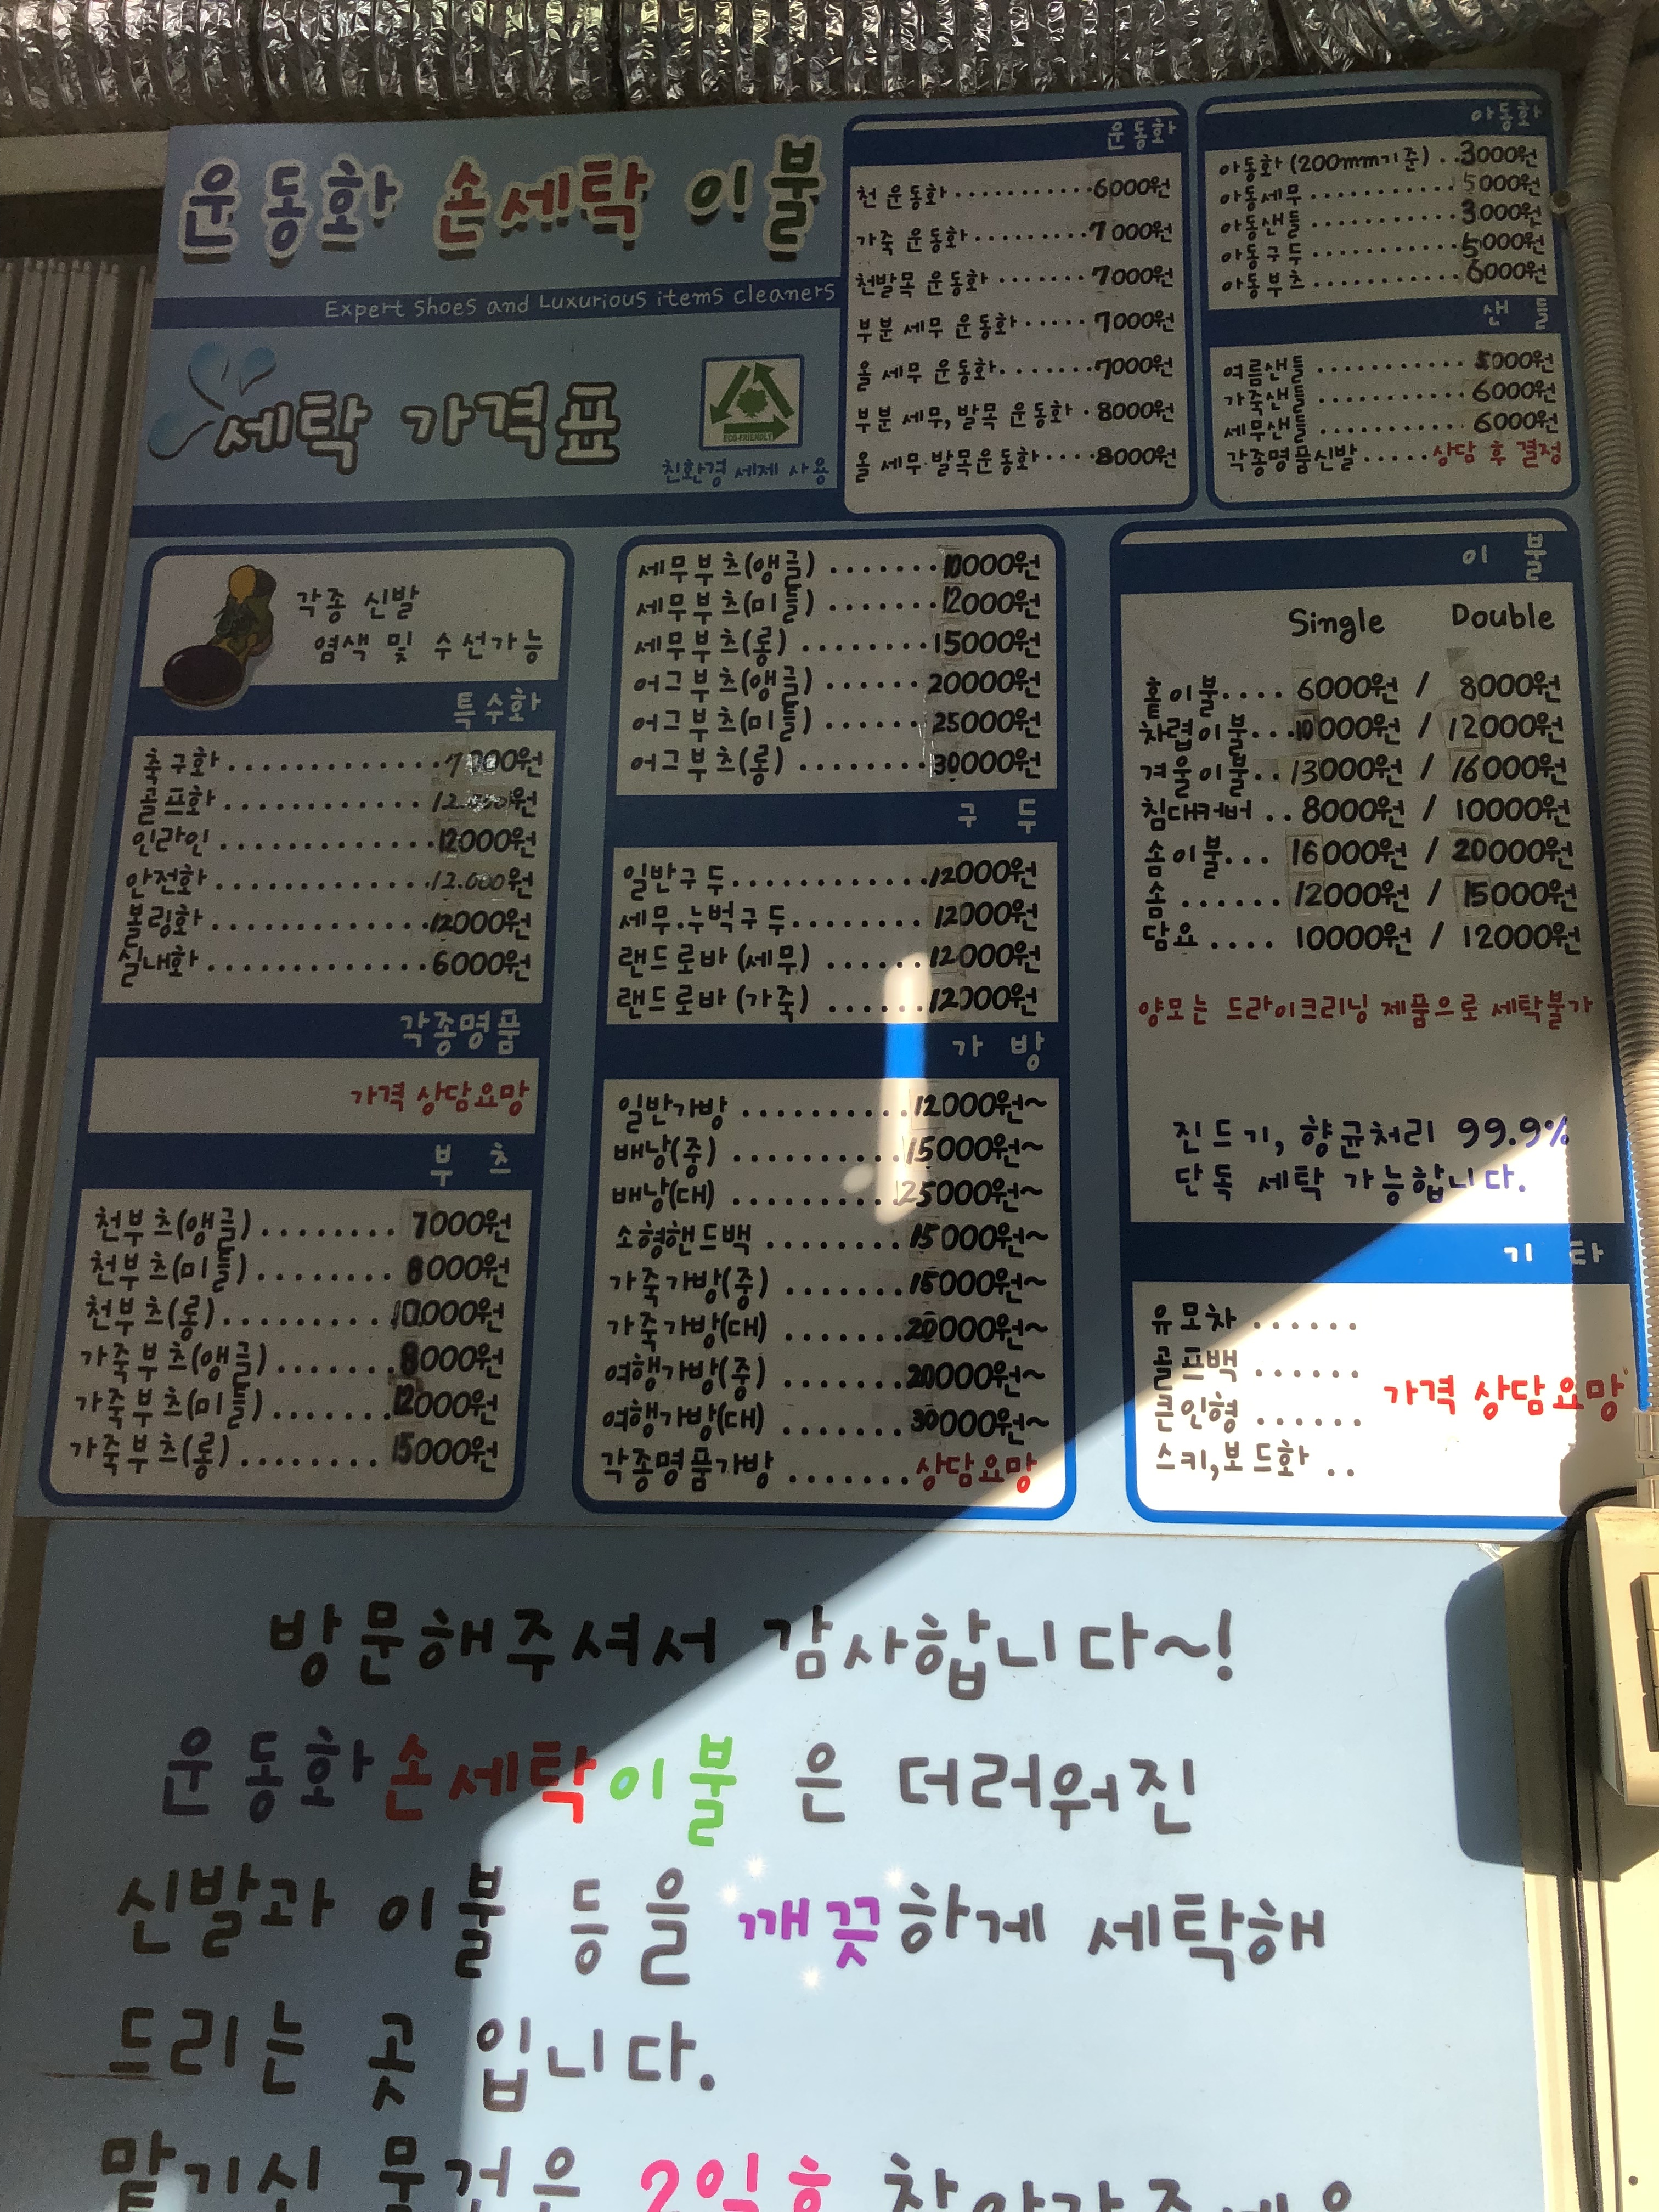 운동화 손세탁 이불
Expert Shoes and Luxurious items cleaners
세탁 가격표
ECO-FRIENDLY
친환경 세제 사용
운동화
천 운동화..........6000원
가죽 운동화..........7000원
천발목 운동화........7000원
부분 세무 운동화.....7000원
올 세무 운동화........7000원
부분 세무, 발목 운동화.8000원
올 세무 발목운동화....8000원
아동화
아동화(200mm기준)..3000원
아동세무............5000원
아동샌들............3000원
아동구두............5000원
아동부츠............6000원
샌들
여름샌들...........5000원
가죽샌들...........6000원
세무샌들...........6000원
각종명품신발.....상담 후 결정
각종 신발
염색 및 수선가능
특수화
축구화.............7000원
골프화............12.000원
인라인.............12000원
안전화.............12.000원
볼링화.............12000원
실내화.............6000원
각종명품
가격 상담요망
부츠
천부츠(앵글)........7000원
천부츠(미들)........8000원
천부츠(롱)..........10000원
가죽부츠(앵글).......8000원
가죽부츠(미들).......12000원
가죽부츠(롱)........15000원
세무부츠(앵글).......10000원
세무부츠(미들).......12000원
세무부츠(롱)........15000원
어그부츠(앵글)......20000원
어그부츠(미들)......25000원
어그부츠(롱)........30000원
구두
일반구두............12000원
세무.누벅구두........12000원
랜드로바(세무)......12000원
랜드로바(가죽)......12000원
가방
일반가방..........12000원~
배낭(중)..........15000원~
배낭(대).........25000원~
소형핸드백........15000원~
가죽가방(중).......15000원~
가죽가방(대).......20000원~
여행가방(중).......20000원~
여행가방(대).......30000원~
각종명품가방.......상담요망
이불
Single Double
홑이불....6000원 / 8000원
차렵이불...10000원 / 12000원
겨울이불..13000원 / 16000원
침대커버..8000원 / 10000원
솜이불...16000원 / 20000원
솜......12000원 / 15000원
담요....10000원 / 12000원
양모는 드라이크리닝 제품으로 세탁불가
진드기, 향균처리 99.9%
단독 세탁 가능합니다.
기타
유모차......
골프백......
큰인형......
스키,보드화..
가격 상담요망
방문해주셔서 감사합니다~!
운동화손세탁이불 은 더러워진
신발과 이불 등을 깨끗하게 세탁해
드리는 곳 입니다.
맡기신 물건은 2일후 찾아가주세요